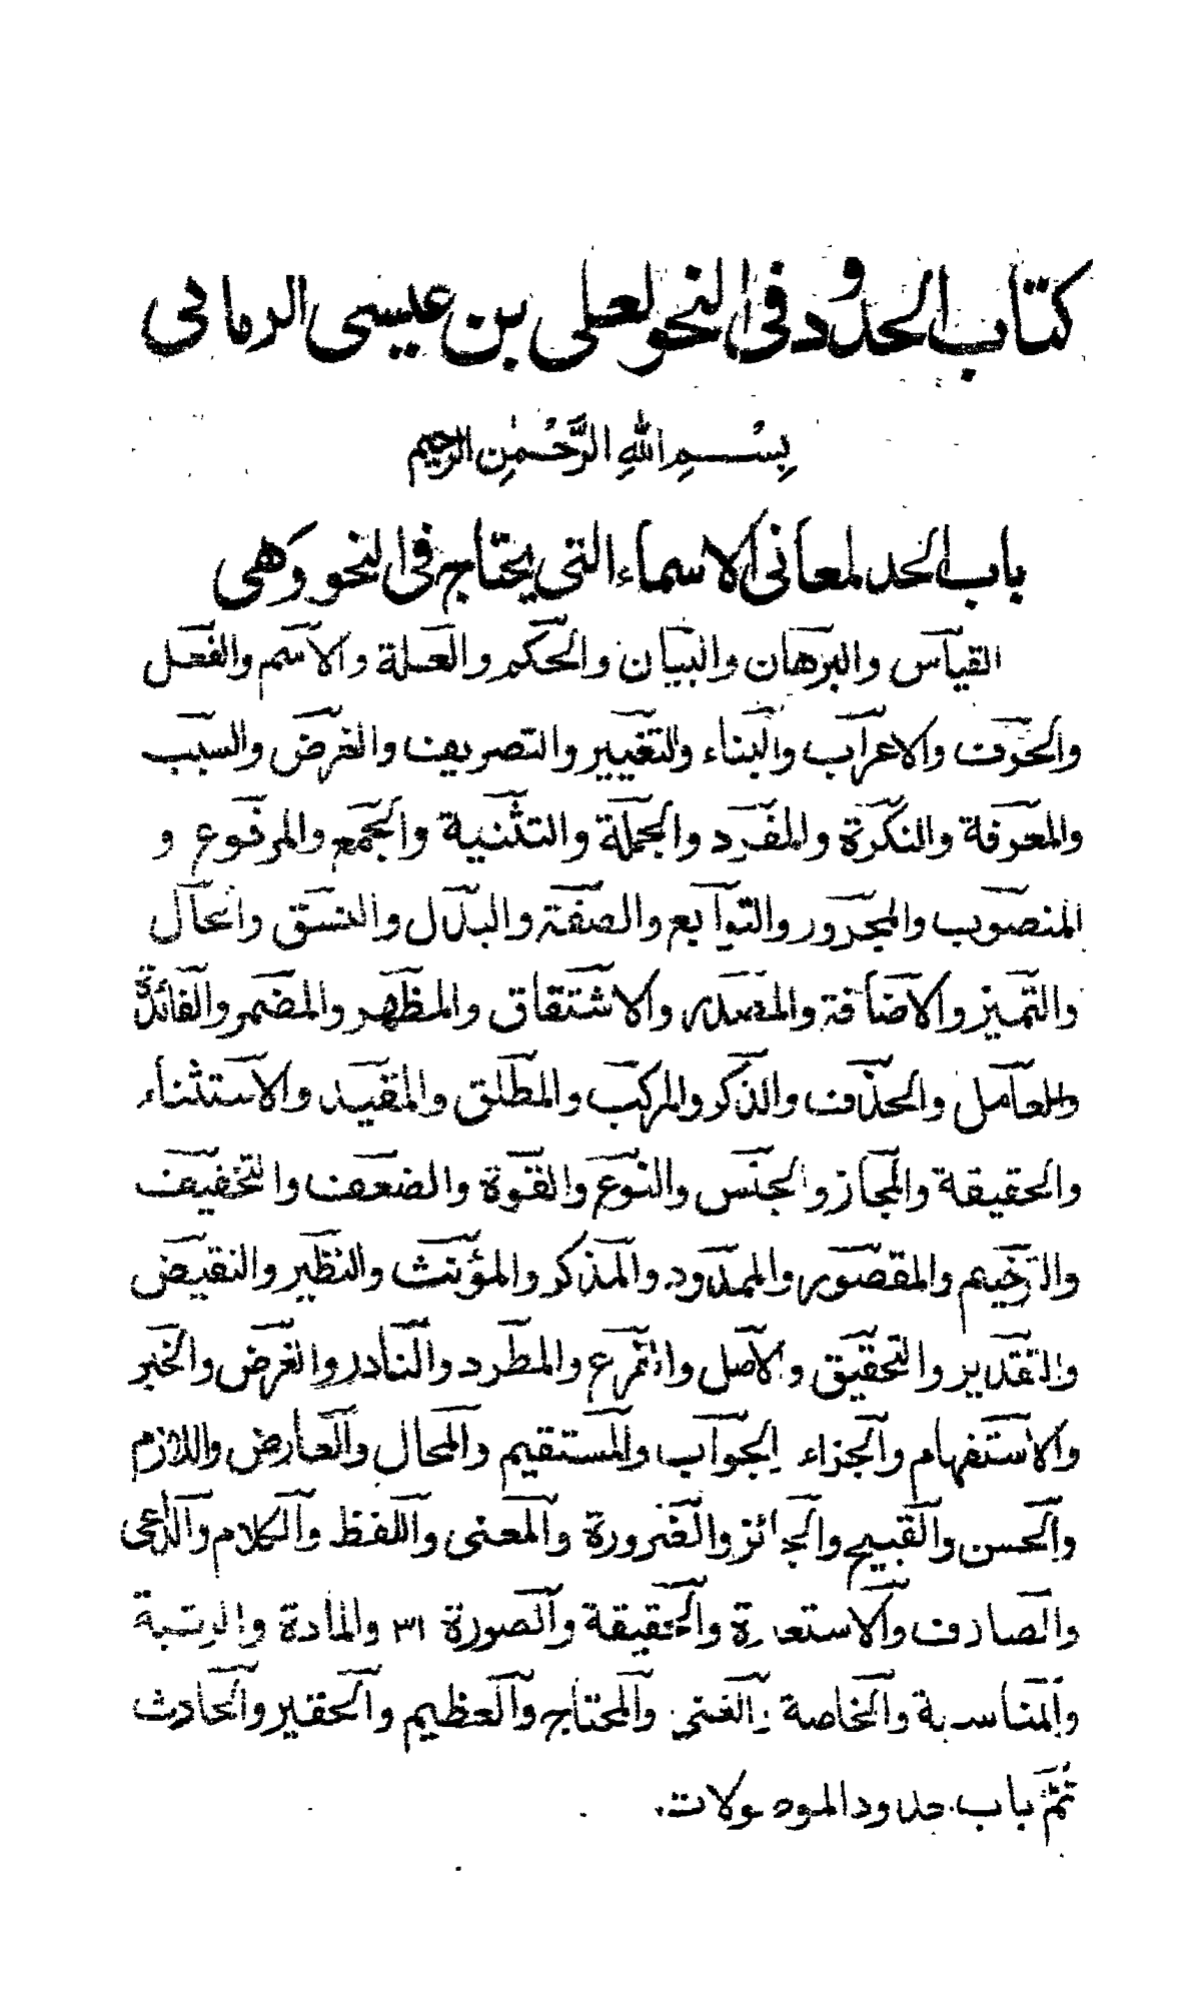 كتاب الحدود في النحو لعلي بن عيسى الرماني
بِسْمِ اللهِ الرَّحْمٰنِ الرحيم
باب الحد لمعاني الاسماء التي يحتاج في النحو وهي
القياس والبرهان والبيان والحكم والعلة والاسم والفعل
والحرف والاعراب والبناء والتغيير والتصريف والغرض والسبب
والمعرفة والنكرة والمفرد والجملة والتثنية والجمع والمرفوع و
المنصوب والمجرور والتوابع والصفة والبدل والنسق والحال
والتميز والاضافة والمصدر والاشتقاق والمظهر والمضمر والفائدة
والعامل والحذف والذكر والمركب والمطلق والمقيد والاستثناء
والحقيقة والمجاز والجنس والنوع والقوة والضعف والتخفيف
والترخيم والمقصور والممدود والمذكر والمؤنث والنظير والنقيض
والتقدير والتحقيق والاصل والفرع والمطرد والنادر والغرض والخبر
والاستفهام والجزاء الجواب والمستقيم والمحال والعارض واللازم
والحسن والقبيح والجائز والضرورة والمعنى واللفظ والكلام والداعى
والصارف والاستعارة والحقيقة والصورة ١٣ والمادة والرتبة
والمناسبة والخاصة والغنى والمحتاج والعظيم والحقير والحادث
تمّ باب حدود الموصولات.